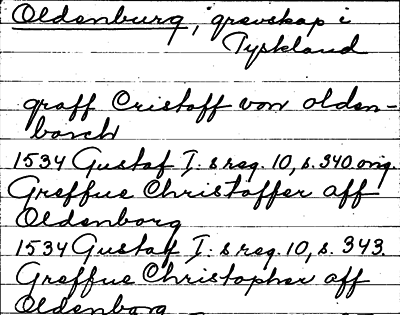 Oldenburg, grevskap i
Tyskland
graff Cristoff von olden-
borch
1534 Gustaf I:s reg. 10, s. 340 orig.
Greffue Christoffer aff
Oldenborg
1534 Gustaf I:s reg. 10, s. 343.
Greffue Christopher aff
Oldenborg